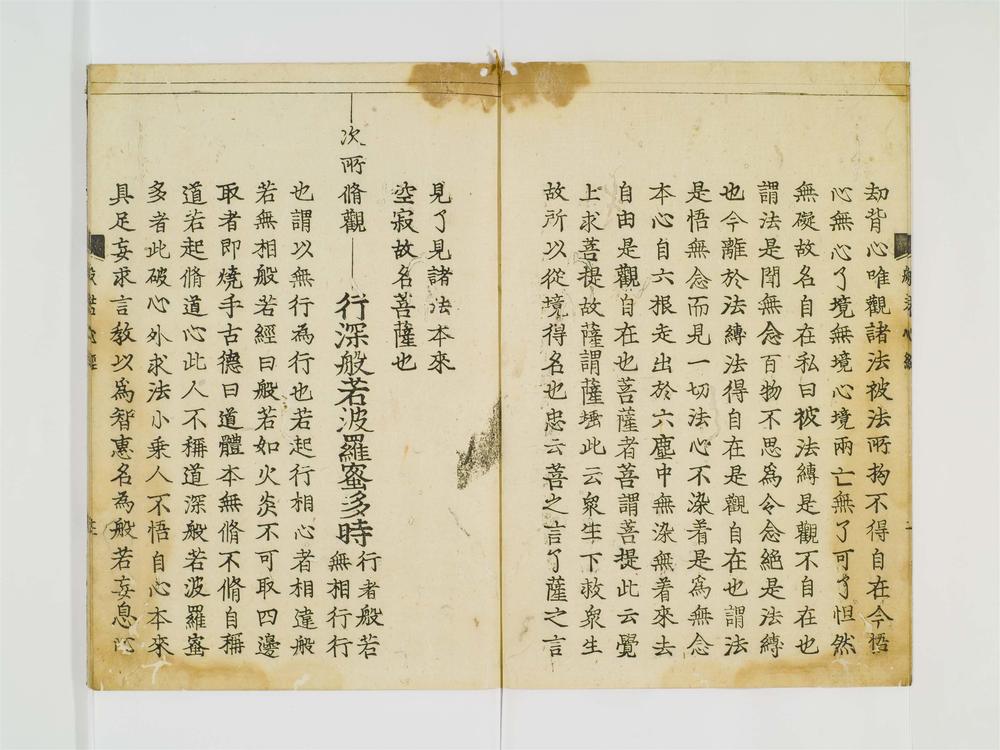 劫背心唯觀諸法被法所拘不得自在今悟
心無心了境無境心境兩亡無了可了怛然
無礙故名自在私曰被法縛是觀不自在也
謂法是閒無念百物不思爲令念絶是法縛
也今離於法縛法得自在是觀自在也謂法
是悟無念而見一切法心不染着是爲無念
本心自六根走出於六塵中無染無着來去
自由是觀自在也菩薩者菩謂菩提此云覺
上求菩提故薩謂薩埵此云衆生下救衆生
故所以從境得名也忠云菩之言了薩之言
見了見諸法本來
空寂故名菩薩也
次所脩觀
行深般若波羅蜜多時
行者般若
無相行行
也謂以無行為行也若起行相心者相違般
若無相般若經曰般若如火炎不可取四邊
取者即燒手古德曰道體本無脩不脩自稱
道若起脩道心此人不稱道深般若波羅蜜
多者此破心外求法小乗人不悟自心本來
具足妄求言教以爲智惠名為般若妄息心
般若心經